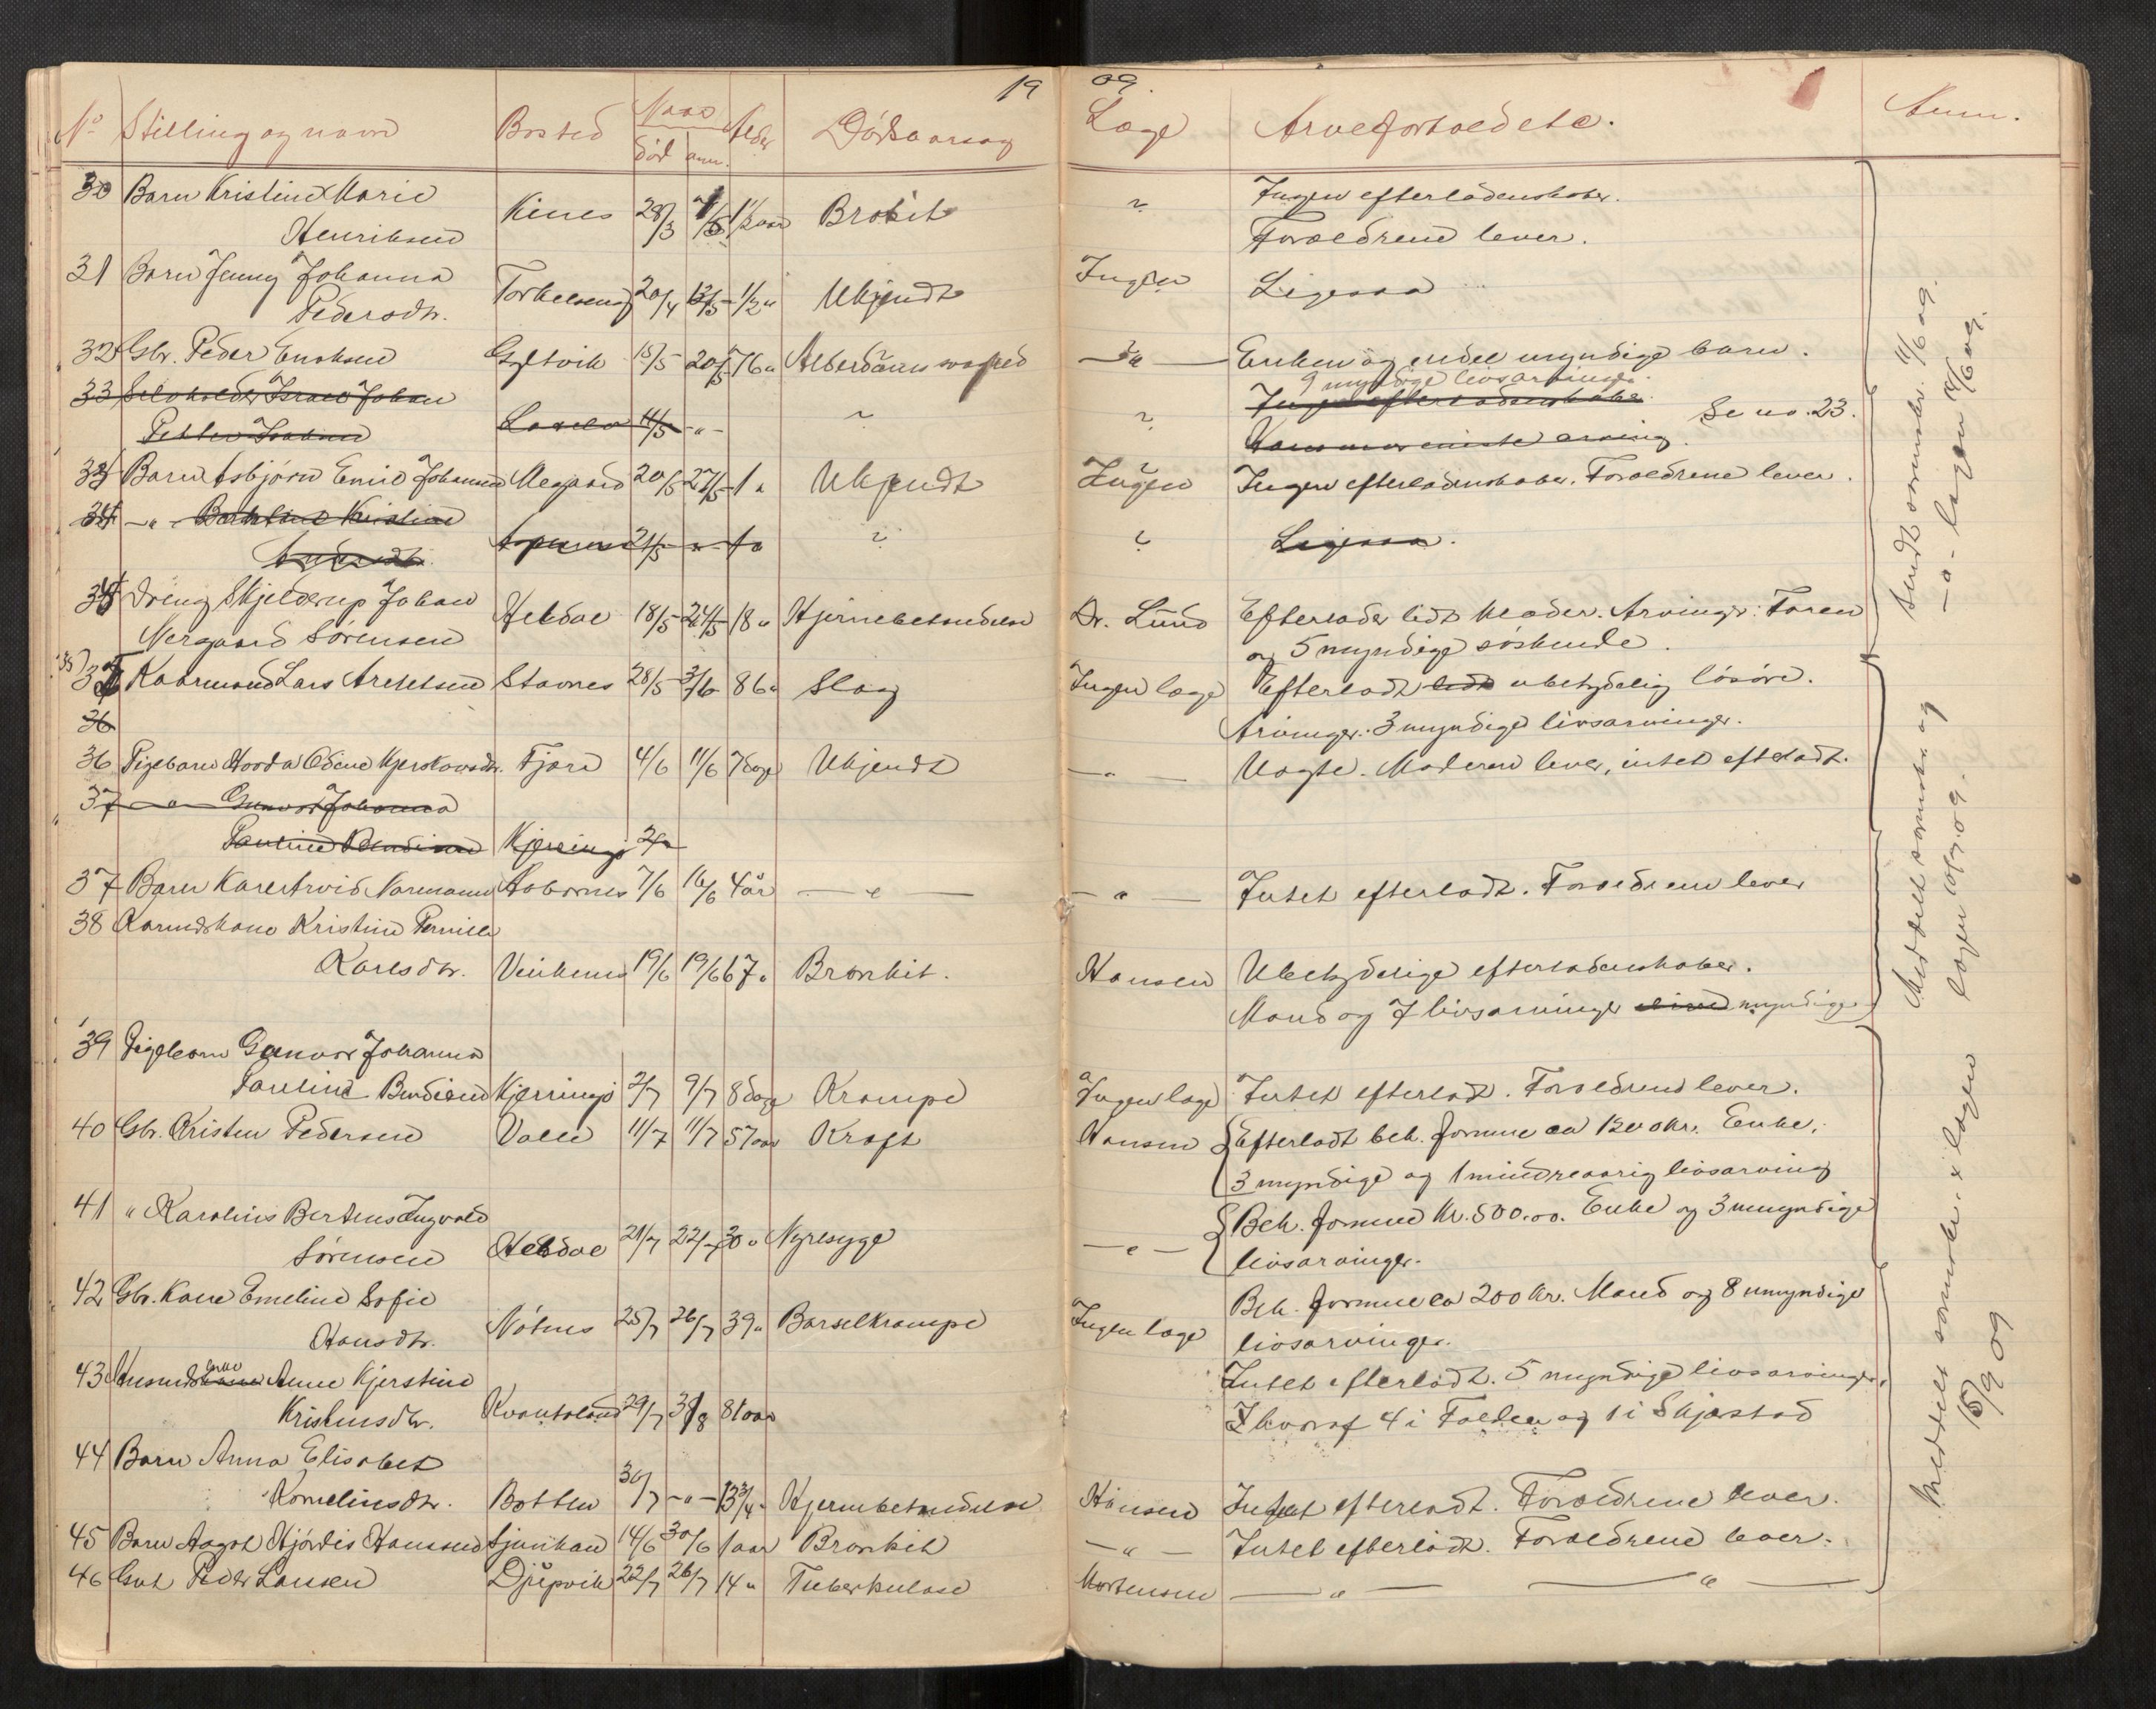 19 09.
No Stilling og navn Bosted Naar død anm. Alder Dødsaarsag Læge Arveforhold etc. Anm.
30 Barn Kristine Marie
Henriksen Kines 28/3 1/5 1 1/2 aar Brokit ? Ingen efterladenskaber.
Forældrene lever.
31 Barn Jenny Johanna
Pedersdtr. 20/4 13/5 1/2 " Ukjendt Ingen Ligesaa
32 Gbr. Peder Enoksen Gyltvik 15/5 20/5 76 " Alderdomssvaghed — " — Enken og endel myndige barn.
9 myndige livsarvinger.
33 Selvholder Israel Johan
Petter 14/5 - " - ? ? Ingen efterladenskaber Se no. 23.
Kommer eneste arving.
33 Barn Asbjørn Emil Johansen Megaard 20/5 27/5 1 " Ukjendt Ingen Ingen efterladenskaber. Forældrene lever.
34 - " - Kristine
21/5 - " - 1 " ? ? Ligesaa.
34 Dreng Skjelderup Johan
Nergaard Sørensen Heldal 18/5 24/5 18 " Hjernebetændelse Dr. Lund Efterlader lidt klæder. Arvinger: Faren
og 5 myndige søskende.
35) Kaarmand Lars Arentsen Stavnes 28/5 3/6 86 " Slag Ingen læge Efterladt lidt ubetydelig løsøre.
36 Arvinger: 3 myndige livsarvinger.
36 Pigebarn Hovda Odine Fjære 4/6 11/6 7 dage Ukjendt — " — Uægte. Moderen lever, intet efterladt.
37 — " — Gunvor Johanna
Pauline Bendiksen Kjerringø 2/7
37 Barn Kaare Arvid Normann 7/6 16/6 4 år — " — — " — Intet efterladt. Forældrene lever
38 Kaarmdskone Kristine Pernille
Karlsdtr. 19/6 19/6 67 " Bronkit. Hansen Ubetydelige efterladenskaber.
Mand og 7 livsarvinger myndige
39 Pigebarn Gunvor Johanna
Pauline Bendiksen Kjerringø 2/7 9/7 8 dage Krampe Ingen læge Intet efterladt. Forældrene lever.
40 Gbr. Kristen Pedersen Valle 11/7 11/7 57 aar Kræft Hansen Efterladt beh. formue ca 1200 kr. Enke,
3 myndige og 1 mindreaarig livsarving
41 " Karolius Berteus Ingvald
Sørensen Heldal 21/7 22/7 30 " Nyresyge — " — Beh. formue kr. 500.00. Enke og 3 umyndige
livsarvinger.
42 Gbr. kone Emeline Sofie
Hansdtr. Nøtnes 25/7 26/7 39 " Barselkrampe Ingen læge Beh. formue ca 200 kr. Mand og 8 umyndige
livsarvinger.
43 Husmdskone enke Anne Kjerstine
Kristensdtr. 29/7 3/8 81 aar Intet efterladt. 5 myndige livsarvinger,
hvoraf 4 i Folden og 1 i Skjæstad
44 Barn Anna Elisabet
Kornelinsdtr. Botten 30/7 - " - 13 3/4 " Hjernebetændelse Hansen Intet efterladt. Forældrene lever.
45 Barn Aagot Hjørdis Hansen 14/6 30/6 1 aar Bronkit — " — Intet efterladt. Forældrene lever.
46 Gut Peder Larsen Djupvik 22/7 26/7 14 " Tuberkulose Mortensen — " — — " —
Sendt sorenskr. 11/6 09.
- " - lægen 14/6 09.
Meddelt sorenskr. og
lægen 10/7. 09.
Meddelt sorenskr. & lægen
15/9 09